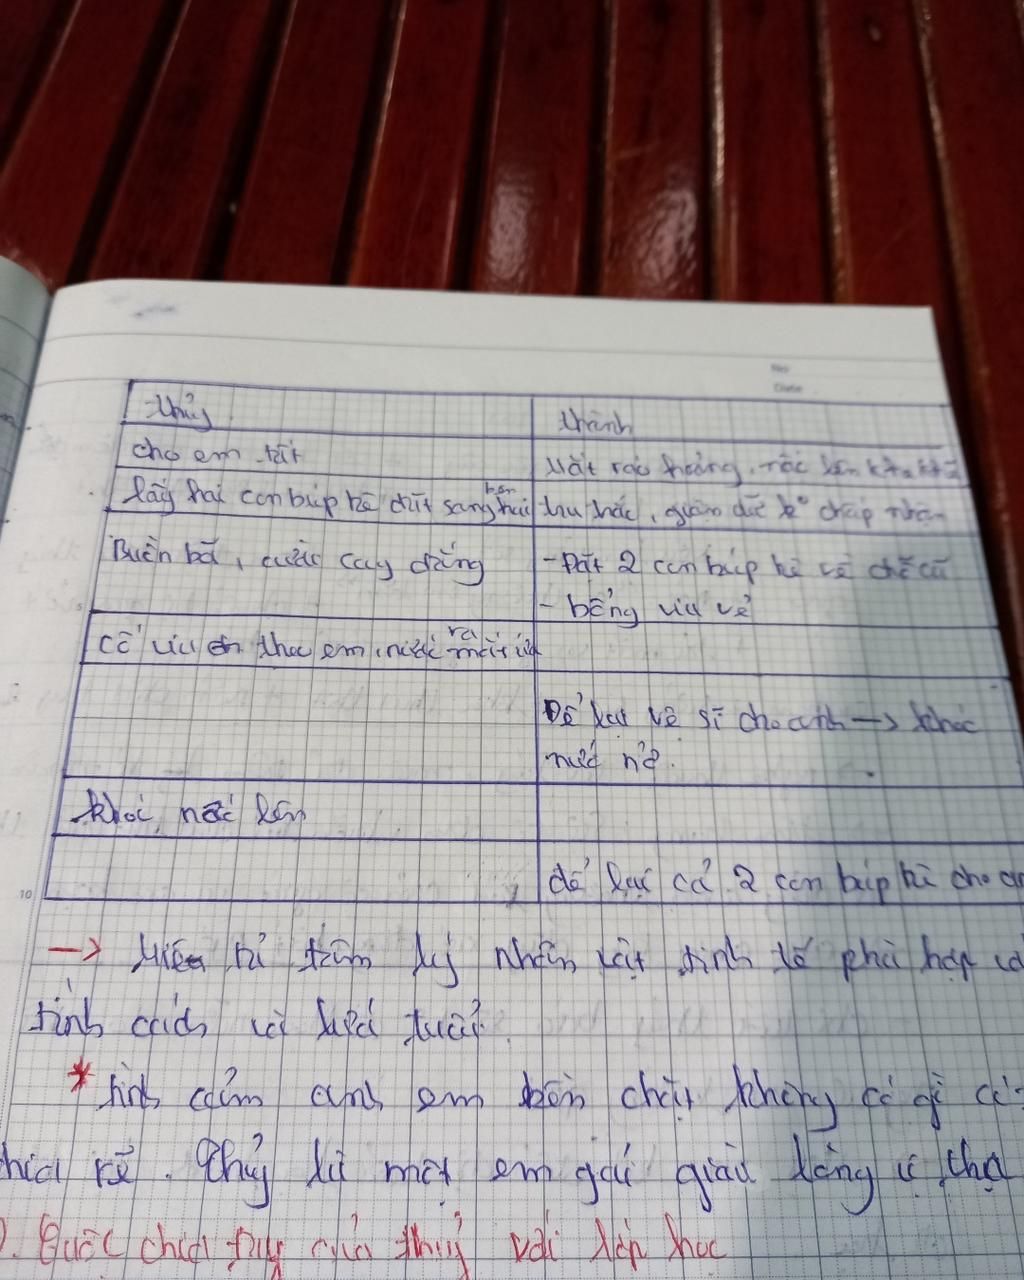 No
Date
Thủy
Thành
cho em tất
Mặt ráo hoảnh, tóc
lấy hai con búp bê đặt sang hai bên
thu hắc, giận dữ k° chấp nhận
Buồn bã, cười cay đắng
- Đặt 2 con búp bê về chỗ cũ
- bỗng vui vẻ
cố vui theo em, nước mắt ứa ra
Để lại vệ sĩ cho anh → khóc
nức nở.
khóc nấc lên
để lại cả 2 con búp bê cho
10
→ Miêu tả tâm lý nhân vật tinh tế phù hợp
tính cách và lứa tuổi.
* tình cảm anh em bền chặt không có gì có
chia rẽ. Thủy là một em gái giàu lòng vị tha
Cuộc chia tay của Thủy với lớp học